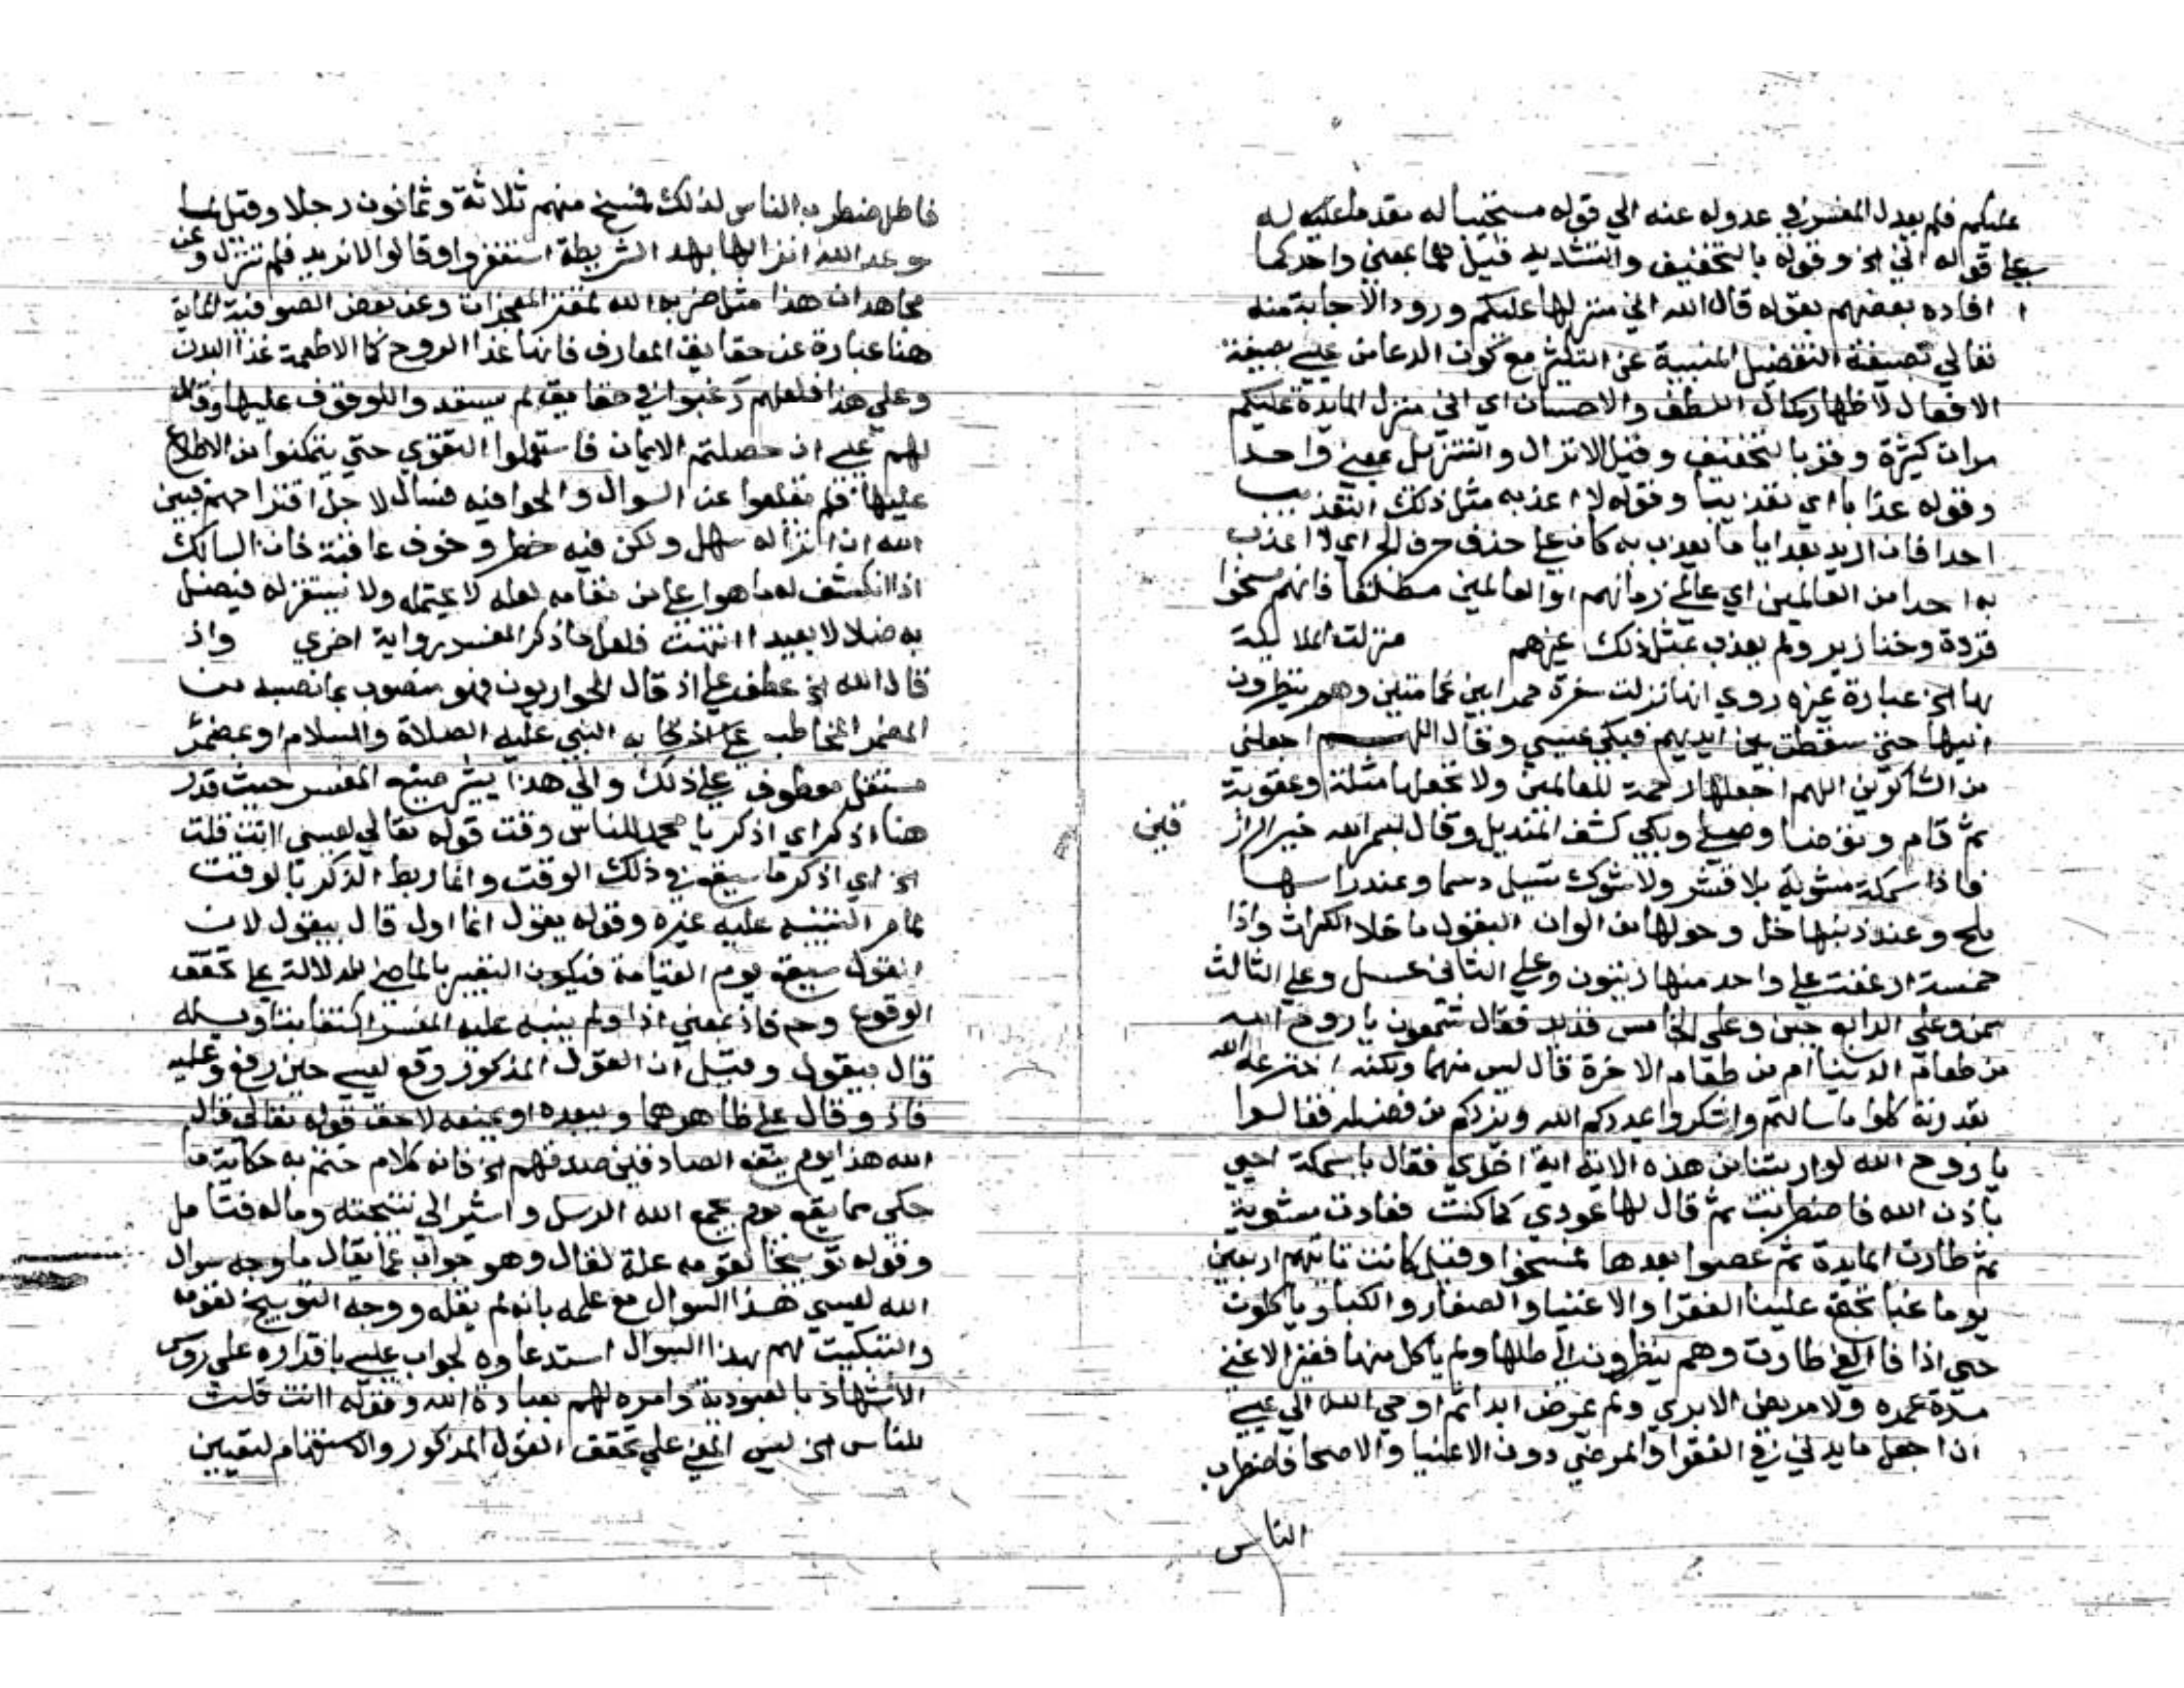 عليكم فلم يعدل المفسر في عدوله عنه الي قوله مستجيبا له مقدما عليه له
علي قوله اني الخ وقوله بالتخفيف والتشديد قيل هما بمعني واحد كما
افاده بعضهم بقوله قال الله اني منزلها عليكم ورود الاجابة منه
تعالي بصيغة التفضيل المنبية عن التكثير مع كون الدعا من عيسي بصيغة
الافعال لاظهار كمال اللطف والاحسان اي اني منزل المايدة عليكم
مرات كثيرة وقر بالتخفيف وقيل الانزال والتنزيل بمعني واحد
وقوله عذابا اي تعذيبا وقوله لا اعذبه مثل ذلك التعذيب
احدا فان اريد بعذابا ما يعذب به كان علي حذف حرف الجر اي لا اعذب
به احدا من العالمين اي عالمي زمانهم او العالمين مطلقا فانهم مسخوا
قردة وخنازير ولم يعذب بمثل ذلك غيرهم منزلت الملايكة
بها الخ عبارة غيره روي انها نزلت سفرة حمرا بين غمامتين وهم ينظرون
اليها حتي سقطت بين ايديهم فبكي عيسي وقال اللهم اجعلني
من الشاكرين اللهم اجعلها رحمة للعالمين ولا تجعلها مثلة وعقوبة
ثم قام وتوضا وصلي وبكي كشف المنديل وقال بسم الله خير الراز
قين
فاذا سمكة مشوية بلا قشر ولا شوك تسيل دسما وعند راسها
ملح وعند ذنبها خل وحولها من الوان البقول ما خلا الكراث واذا
خمسة ارغفة علي واحد منها زيتون وعلي الثاني عسل وعلي الثالث
سمن وعلي الرابع جبن وعلي الخامس قديد فقال شمعون يا روح الله
من طعام الدنيا ام من طعام الاخرة قال ليس منهما ولكنه اخترعه الله
بقدرته كلوا ما سالتم واشكروا يمددكم الله ويزدكم من فضله فقالوا
يا روح الله لو اريتنا من هذه الاية اية اخري فقال يا سمكة احيي
باذن الله فاضطربت ثم قال لها عودي كما كنت فعادت مشوية
ثم طارت المايدة ثم عصوا بعدها فمسخوا وقيل كانت تاتيهم اربعين
يوما غبا تجتمع عليها الفقرا والاغنيا والصغار والكبار وياكلون
حتي اذا فا الفي طارت وهم ينظرون الي ظلها ولم ياكل منها فقير الا غني
مدة عمره ولا مريض الا بري ولم يمرض ابدا ثم اوحي الله الي عيسي
ان اجعل مايدتي في الفقرا والمرضي دون الاغنيا والاصحا فاضطرب
الناس
فاضطرب الناس لذلك فمسخ منهم ثلاثة وثمانون رجلا وقيل لما
وعد الله انزالها بهذه الشريطة استغفروا وقالوا لا نريد فلم تنزل وعن
مجاهد ان هذا مثل ضربه الله لمقترحي المعجزات وعن بعض الصوفية المايدة
هنا عبارة عن حقايق المعارف فانها غذا الروح كما الاطعمة غذا البدن
وعلي هذا فلعلهم رغبوا في حقايق لم يستعدوا للوقوف عليها وقال
لهم عيسي ان حصلتم الايمان فاستعملوا التقوي حتي يتمكنوا من الاطلاع
عليها فلم يقلعوا عن السوال والحوا فيه فسال لاجل اقتراحهم فبين
الله ان انزاله سهل ولكن فيه خطر وخوف عاقبة فان السالك
اذا انكشف له ما هو اعلي من مقامه لعله لا يحتمله ولا يستقر له فيضل
به ضلالا بعيدا انتهت فلعل ما ذكر المفسر رواية اخري واذ
قال الله الخ عطف علي اذ قال الحواريون فهو منصوب بما نصبه من
المضمر المخاطب به النبي عليه الصلاة والسلام او بمضمر
مستقل معطوف علي ذلك والي هذا يشير صنيع المفسر حيث قدر
هنا اذكر اي اذكر يا محمد للناس وقت قوله تعالي لعيسي اانت قلت
الخ اي اذكر ما سيقع في ذلك الوقت وانما ربط الذكر بالوقت
لما مر التنبيه عليه غيره وقوله يقول انما اول قال بيقول لان
القول سيقع يوم القيامة فيكون التعبير بالماضي للدلالة علي تحقق
الوقوع وح فاذ بمعني اذا ولم ينبه عليه المفسر اكتفا بتاويله
قال بيقول وقيل ان القول المذكور وقع لعيسي حين رفع وعليه
فاذ وقال علي ظاهرهما ويبعده او يمنعه لاحق قوله تعالي قال
الله هذا يوم ينفع الصادقين صدقهم الخ فانه كلام ختم به حكاية ما
حكي مما يقع يوم يجمع الله الرسل واشير الي نتيجته وماله فتامل
وقوله توبيخا لقومه علة لقال وهو جواب عما يقال ما وجه سوال
الله لعيسي هذا السوال مع علمه بانه لم يقله ووجه التوبيخ لقومه
والتبكيت لهم بهذا السوال استدعاوه لجواب عيسي باقراره علي روس
الاشهاد بالعبودية وامره لهم بعبادة الله وقوله اانت قلت
للناس الخ ليس المعني علي تحقق القول المذكور والاستفهام لتعيين